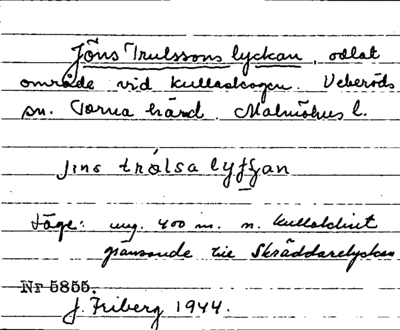 Jöns Trulssons lyckan, odlat
område vid kullaskogen. Veberöds
sn. Torna härd. Malmöhus l.
jɪns trɔ́lsa lyʃʃan
Läge: ung. 400 m. n.
gränsande till Skräddarelyckan
Nr 5855.
J. Friberg 1944.